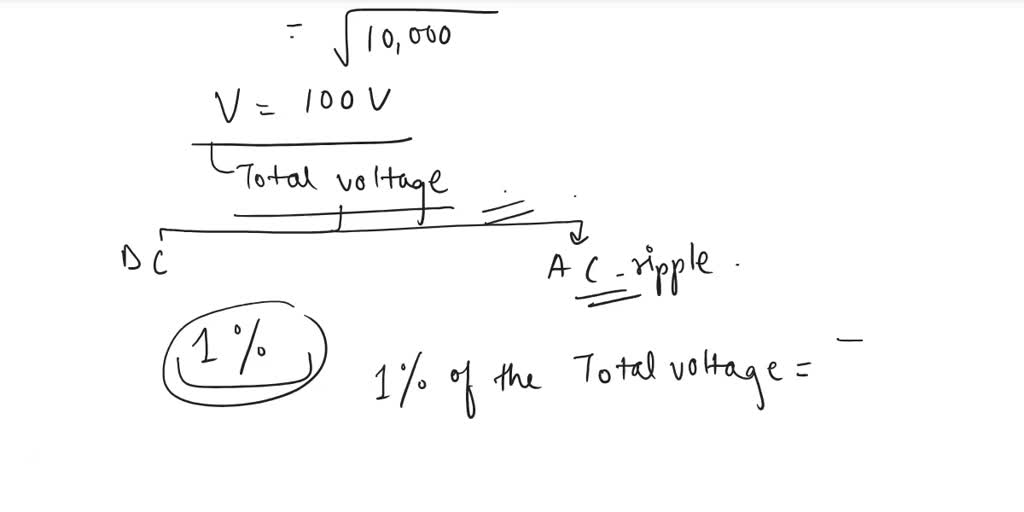 = √10,000
V = 100 V
Total voltage
DC
AC - ripple.
1%
1% of the Total voltage =